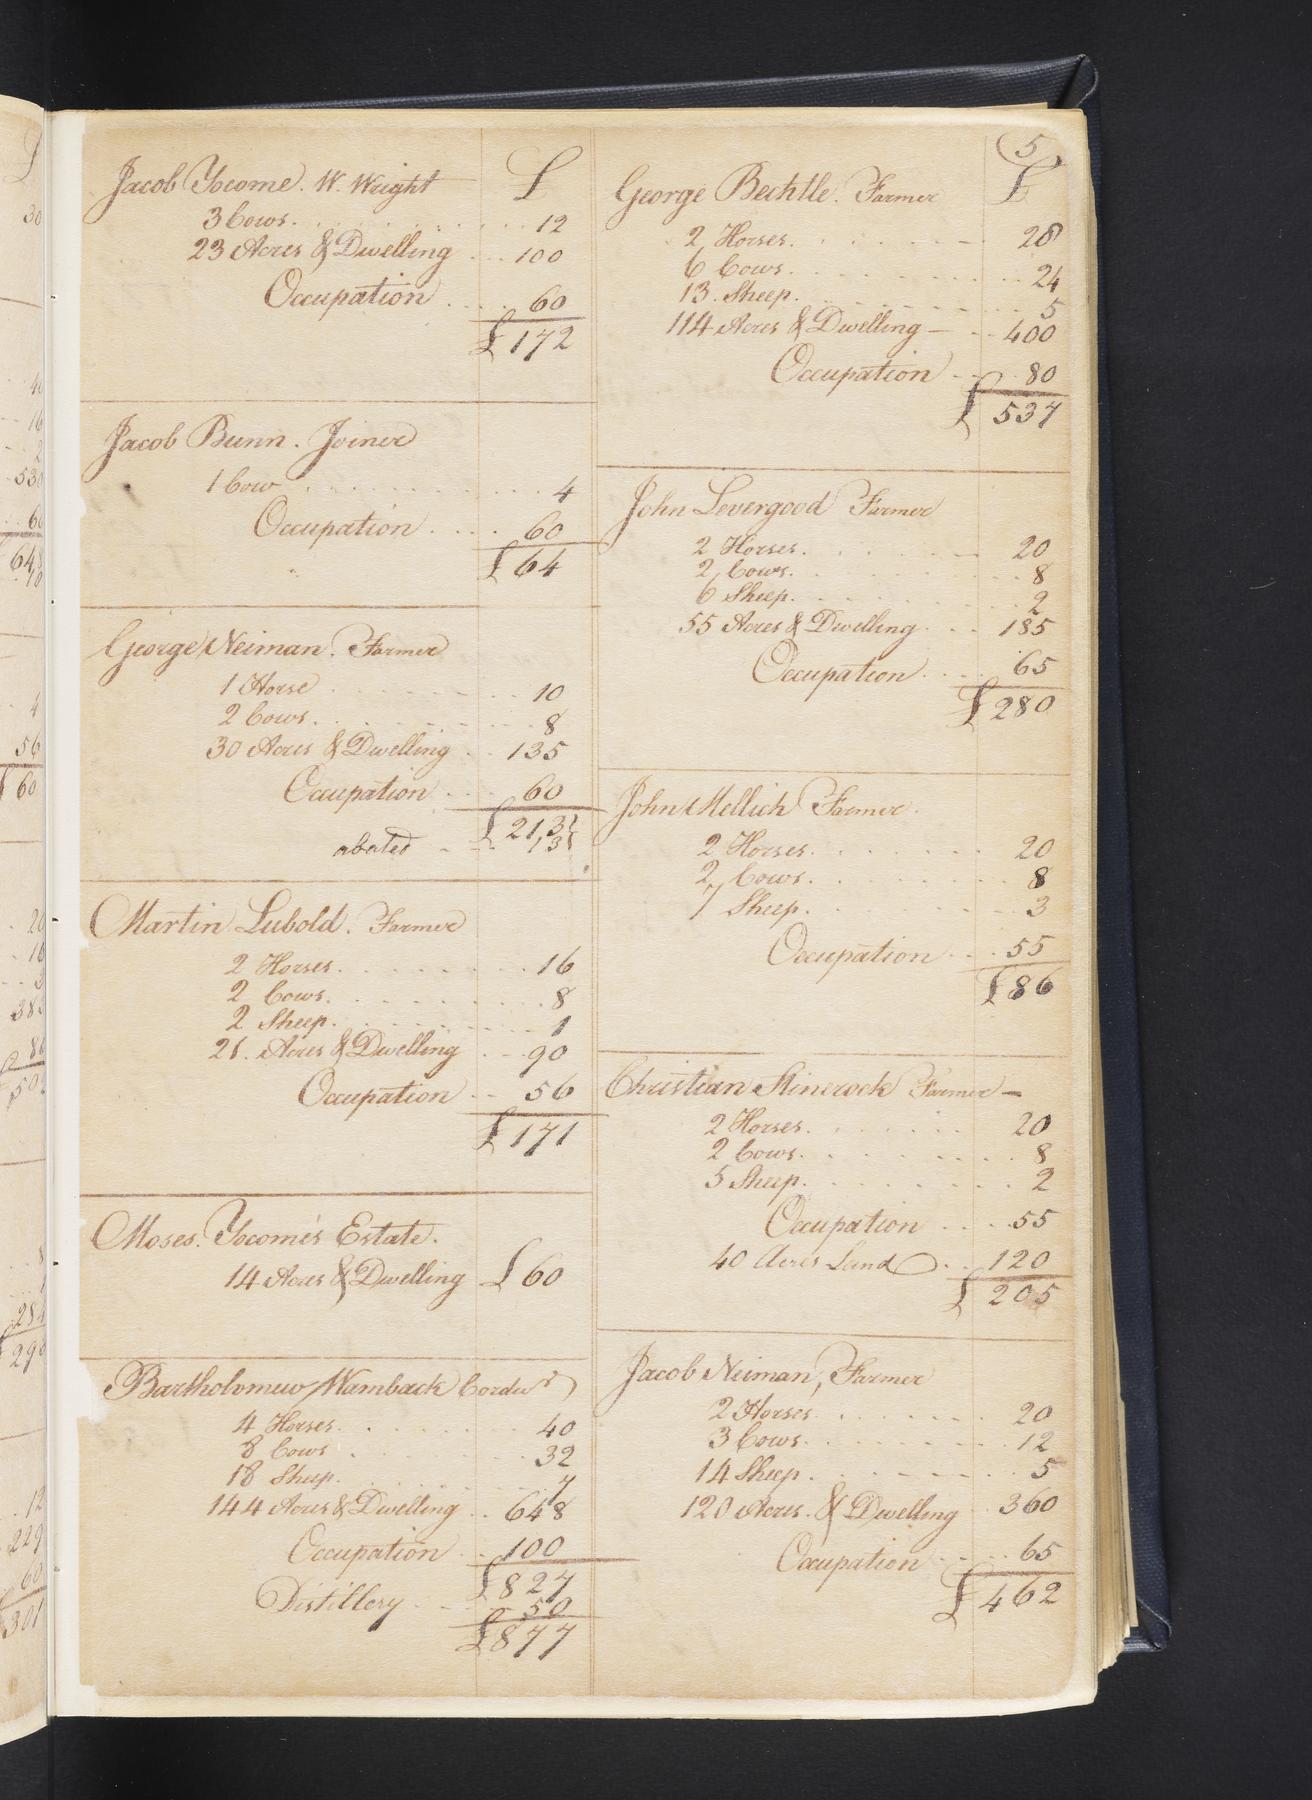 Jacob Yocome. W. Wright £
3 Cows. 12
23 Acres & Dwelling 100
Occupation 60
£172
Jacob Bunn. Joiner
1 Cow 4
Occupation 60
£64
George Neiman. Farmer
1 Horse 10
2 Cows. 8
30 Acres & Dwelling 135
Occupation 60
£213
abated
Martin Lubold. Farmer
2 Horses. 16
2 Cows. 8
2 Sheep. 1
21. Acres & Dwelling 90
Occupation 56
£171
Moses. Yocome's Estate.
14 Acres & Dwelling £60
Bartholomew Wamback
4 Horses. 40
8 Cows 32
18 Sheep. 7
144 Acres & Dwelling 648
Occupation 100
£827
Distillery 50
£877
5
George Bechtle. Farmer £
2 Horses. 28
6 Cows. 24
13. Sheep. 5
114 Acres & Dwelling 400
Occupation 80
£537
John Levergood Farmer
2 Horses. 20
2 Cows. 8
6 Sheep. 2
55 Acres & Dwelling 185
Occupation 65
£280
John Mellich Farmer.
2 Horses. 20
2 Cows. 8
7 Sheep. 3
Occupation 55
£86
Christian Stinerock Farmer
2 Horses. 20
2 Cows. 8
5 Sheep. 2
Occupation 55
40 Acres Land 120
£205
Jacob Neiman, Farmer
2 Horses 20
3 Cows. 12
14 Sheep. 5
120 Acres. & Dwelling 360
Occupation 65
£462